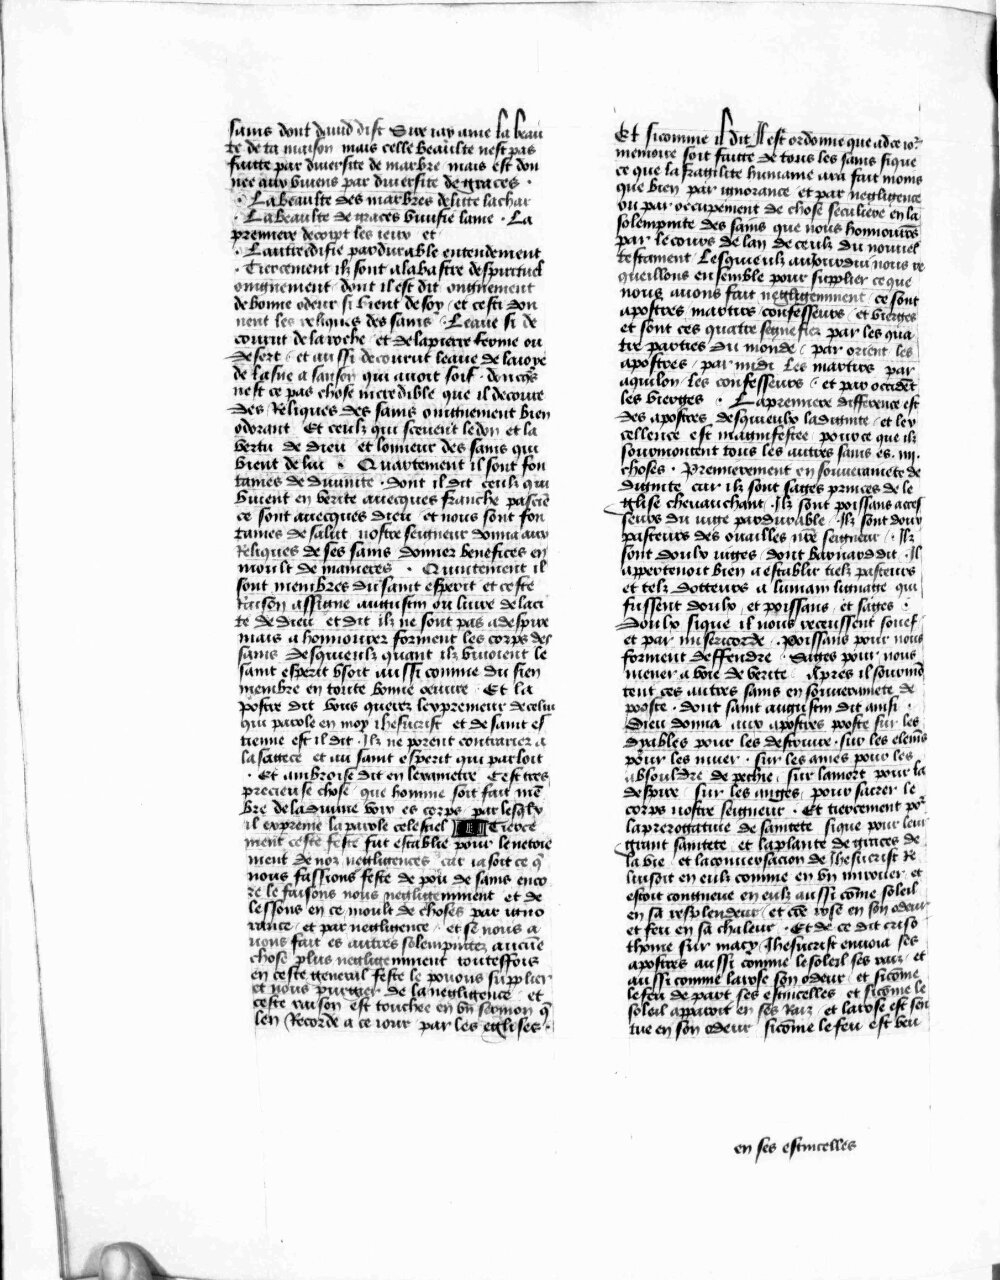 sains dont dauid dist Sire iay ame la beau
te de ta maison mais celle beaulte nest pas
faitte par diuersite de marbre mais est don
nee aux viuens par diuersite de graces ·
· La beaulte des marbres delitte la char
· La beaulte de graces viuifie lame · La
premiere decoipt les ieux et
· Lautre edifie pardurable entendement
· Tiercement ilz sont alabastre despirituel
oingnement dont il est dit oingnement
de bonne odeur si vient de soy et cest don
nent les reliques des sains · Leaue si de
courut de la roche et de la pierre ferme ou
desert et aussi decourut leaue de la ioye
de lasne a sanson qui auoit soif · doncqs
nest ce pas chose incredible que il decoure
des Reliques des sains oingnement bien
odorant Et ceulz qui sceuent le don et la
vertu de dieu et lonneur des sains qui
vient de lui · Quartement il sont fon
taines de diuinite · dont il dit ceulz qui
viuent en verite auecques franche pascie
ce sont auecques dieu et nous sont fon
taines de salut nostre seigneur donna aux
Reliques de ses sains donner benefices en
moult de manieres · Quintement il
sont membres du saint esperit et ceste
Raison assigne augustin ou liure de la ci
te de dieu et dit ilz ne sont pas a despire
mais a honnourer forment les corps des
sains desquelz quant ilz viuoient le
saint esperit vsoit aussi comme du sien
membre en toute bonne oeuure · Et la
postre dit vous querez lexpremeur de celui
qui parole en moy ihesucrist et de saint es
tienne est il dit · Ilz ne porent contrarier a
la sattece et au saint esperit qui parloit
· Et ambroise dit en lexametre Cest tres
precieuse chose que homme soit fait me
bre de la diuine voix es corps par lesqlx
il expreme la parole celestiel Tierce
ment ceste feste fut establie pour le netoie
ment de noz negligences car ia soit ce q
nous fassions feste de pou de sains enco
re le faisons nous negligemment et de
lessons en ce moult de choses par igno
rance et par negligence et se nous a
uons fait es autres solempnitez aucune
chose plus negligemment touteffois
en ceste general feste le pouons supplier
et nous purgier de la negligence et
ceste raison est touchee en vn sermon q
len Recorde a ce iour par les eglises ·
Et sicomme il dit Il est ordonne que ad ce ior
memoire soit faitte de tous les sains si que
ce que la fragilite humaine ara fait moins
que bien par ignorance et par negligence
ou par occupement de chose seculiere en la
solempnite des sains que nous honnouros
par le cours de lan de ceulz du nouuel
testament Lesqueulz auiourdui nous re
queillons ensemble pour supplier ce que
nous auons fait negligemment · ce sont
apostres martirs confesseurs et vierges
et sont ces quatre segnefiez par les qua
tre parties du monde par orient les
apostres par midi Les martirs par
aquilon les confesseurs · et par occidet
les vierges · La premiere difference est
des apostres desqueulx la dignite et lex
cellence est magnifestee pource que ilz
sourmontent tous les autres sains es · iiij ·
choses · Premierement en souuerainete de
dignite car ilz sont sages princes de le
glise cheuauchant · Ilz sont poissans asses
seurs du iuge pardurable · Ilz sont doux
pasteurs des ouailles nre seigneur · Ilz
sont doulx iuges dont bernard dit · Il
appertenoit bien a establir tielz pasteurs
et telz dotteurs a lumain lignage qui
fussent doulx et poissans et sages ·
Doulx si que il nous receussent souef
et par misericorde · Poissans pour nous
forment deffendre · Sages pour nous
mener a voie de verite Apres il sourmo
tent ces autres sains en souuerainete de
poste · dont saint augustin dit ainsi ·
Dieu donna aux apostres poste sur les
dyables pour les destruire · sur les elems
pour les muer · sur les ames pour les
absouldre de pechie sur la mort pour la
despire sur les anges pour sacrer le
corps nostre seigneur · Et tiercement por
la prerogatiue de saintete si que pour leur
grant saintete et la plante de graces de
la vie et la conuersacion de Ihesucrist Re
luisoit en eulz comme en vn mirouer et
estoit congneue en eulz aussi come soleil
en sa resplendeur et coe rose en son odeur
et feu en sa chaleur · Et de ce dit criso
thome sur macy Ihesucrist enuoia ses
apostres aussi comme le soleil ses raiz et
aussi comme la rose son odeur et sicome
le feu de part ses estincelles et sicome le
soleil apparoit en ses Raiz et la rose est sen
tue en son odeur sicome le feu est veu
en ses estincelles